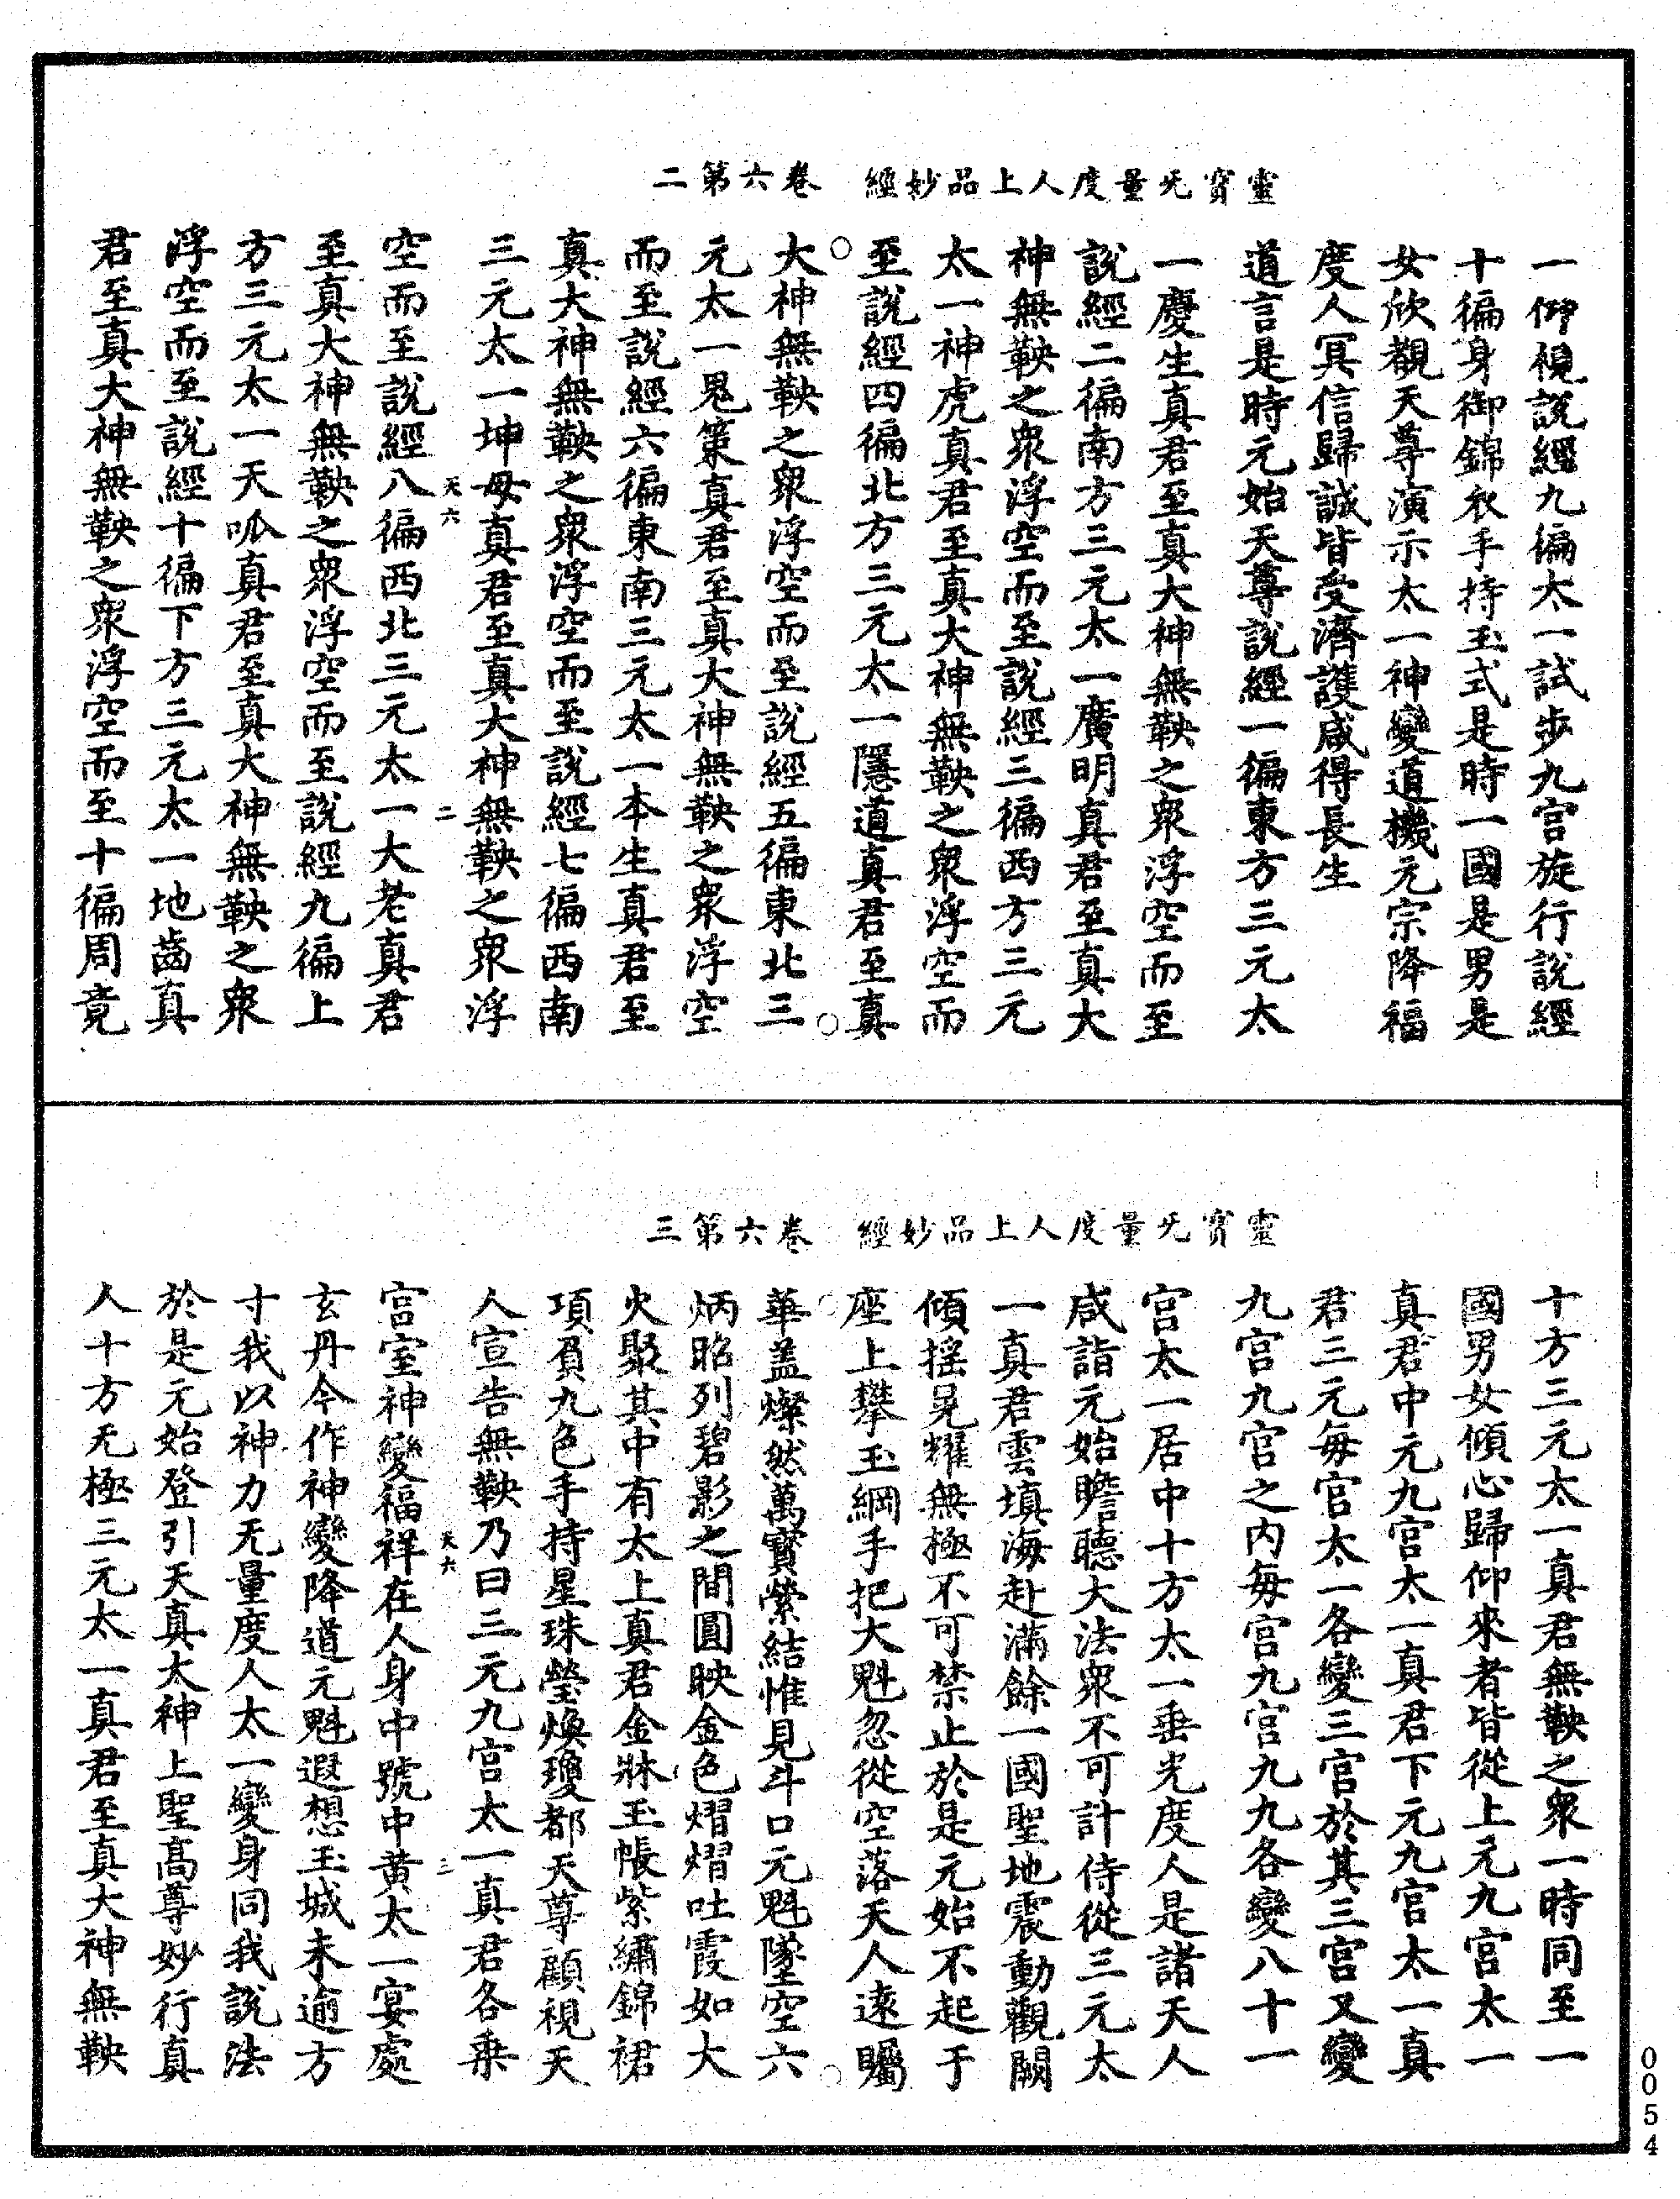 靈寶无量度人上品妙經　卷六第二
一仰視說經九徧太一試步九宮旋行說經
十徧身御錦衣手持玉式是時一國是男是
女欣覩天尊演示太一神變道機元宗降福
度人冥信歸誠皆受濟護咸得長生
道言是時元始天尊說經一徧東方三元太
一慶生真君至真大神無鞅之衆浮空而至
說經二徧南方三元太一廣明真君至真大
神無鞅之衆浮空而至說經三徧西方三元
太一神虎真君至真大神無鞅之衆浮空而
至說經四徧北方三元太一隱道真君至真
大神無鞅之衆浮空而至說經五徧東北三
元太一鬼策真君至真大神無鞅之衆浮空
而至說經六徧東南三元太一本生真君至
真大神無鞅之衆浮空而至說經七徧西南
三元太一坤母真君至真大神無鞅之衆浮
天六　二
空而至說經八徧西北三元太一大老真君
至真大神無鞅之衆浮空而至說經九徧上
方三元太一天呱真君至真大神無鞅之衆
浮空而至說經十徧下方三元太一地齒真
君至真大神無鞅之衆浮空而至十徧周竟
靈寶无量度人上品妙經　卷六第三
十方三元太一真君無鞅之衆一時同至一
國男女傾心歸仰來者皆從上元九宮太一
真君中元九宮太一真君下元九宮太一真
君三元每宮太一各變三宮於其三宮又變
九宮九宮之内每宮九宮九九各變八十一
宮太一居中十方太一垂光度人是諸天人
咸詣元始瞻聽大法衆不可計侍從三元太
一真君雲填海赴滿餘一國聖地震動觀闕
傾搖晃耀無極不可禁止於是元始不起于
座上攀玉綱手把大魁忽從空落天人遠矚
華蓋燦然萬寶縈結惟見斗口元魁墜空六
炳昭列碧影之間圓映金色熠熠吐霞如大
火聚其中有太上真君金牀玉帳紫繡錦裙
項負九色手持星珠瑩煥瓊都天尊顧視天
人宣告無鞅乃曰三元九宮太一真君各乗
天六　三
宮室神變福祥在人身中號中黄太一宴處
玄丹今作神變降道元魁遐想玉城未逾方
寸我以神力无量度人太一變身同我說法
於是元始登引天真太神上聖高尊妙行真
人十方无極三元太一真君至真大神無鞅
0054